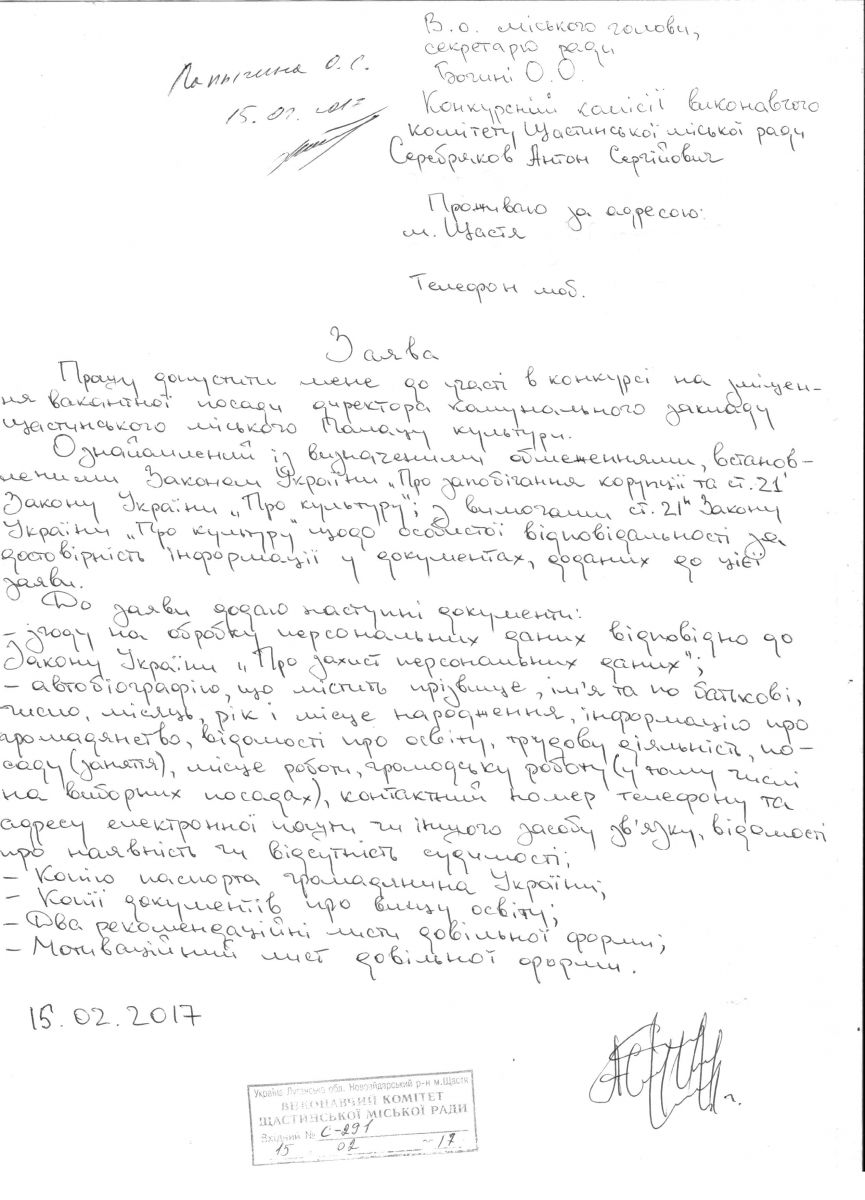 В.о. міського голови,
секретарю ради
Богині О.О.
О.С.
15.02. 2017
Конкурсній комісії виконавчого
комітету Щастинської міської ради
Серебряков Антон Сергійович
Проживаю за адресою:
м. Щастя
Телефон моб.
Заява
Прошу допустити мене до участі в конкурсі на заміщен-
ня вакантної посади директора комунального закладу
Щастинського міського Палацу культури.
Ознайомлений із визначеними обмеженнями, встанов-
леними Законом України „Про запобігання корупції та ст.21'
Закону України „Про культуру"; з вимогами ст.21" Закону
України „Про культуру" щодо особистої відповідальності за
достовірність інформації у документах, доданих до цієї
заяви.
До заяви додаю наступні документи:
- згоду на обробку персональних даних відповідно до
Закону України „Про захист персональних даних";
- автобіографію, що містить прізвище, ім'я та по батькові,
число, місяць, рік і місце народження, інформацію про
громадянство, відомості про освіту, трудову діяльність, по-
саду (заняття), місце роботи, громадську роботу (у тому числі
на виборних посадах), контактний номер телефону та
адресу електронної пошти чи іншого засобу зв'язку, відомості
про наявність чи відсутність судимості;
- Копію паспорта громадянина України;
- Копії документів про вищу освіту;
- Два рекомендаційні листи довільної форми;
- Мотиваційний лист довільної форми.
15.02.2017
Україна Луганська обл. Новоайдарський р-н м.Щастя
ВИКОНАВЧИЙ КОМІТЕТ
ЩАСТИНСЬКОЇ МІСЬКОЇ РАДИ
Вхідний № С-291
15 02 17